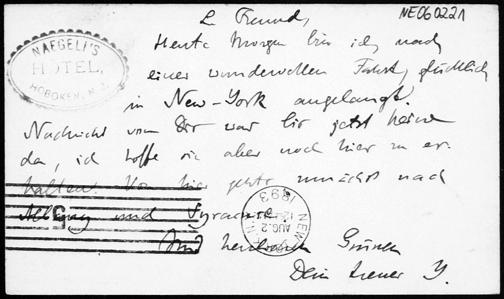 L. Freund,
NE060221
NAEGELI'S
HOTEL,
HOBOKEN, N.J.
Heute Morgen bin ich nach
einer wundervollen Fahrt, glücklich
in New-York angelangt.
Nachricht von Dir war bis jetzt keine
da, ich hoffe sie aber noch hier zu er-
halten. Von hier gehts zunächst nach
Albany und Syracuse.
NEW
AUG. 2
1893
Mit herzlichen Grüssen
Dein treuer Y.